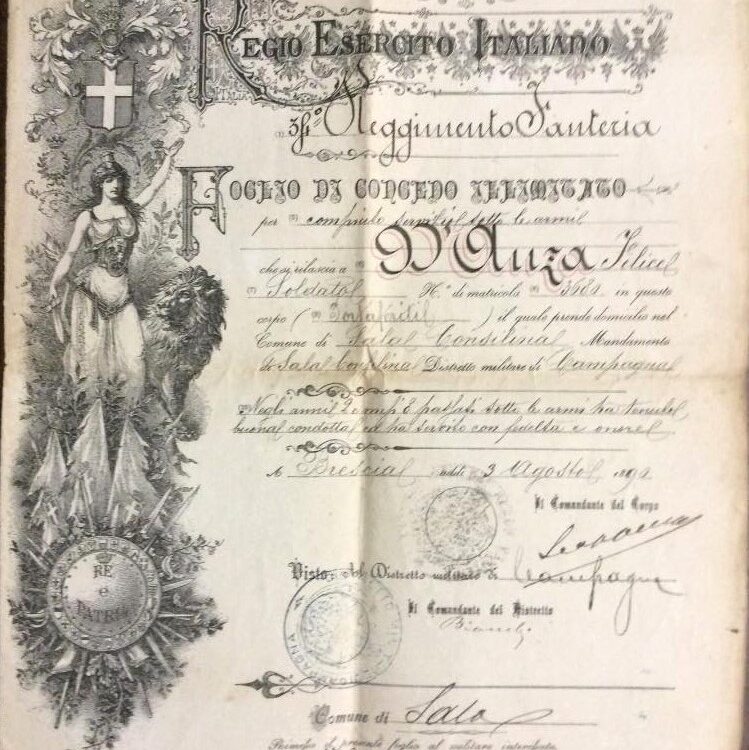 REGIO ESERCITO ITALIANO
Reggimento Fanteria
FOGLIO DI CONGEDO ILLIMITATO
per compiuto servizio sotto le armi
che si rilascia a D'Anza Felice
Soldato N.° di matricola in questo
corpo ( ) il quale prende domicilio nel
Comune di Sala Consilina Mandamento
di Sala Consilina Distretto militare di Campagna
Negli anni 2 mesi 8 passati sotto le armi ha tenuto
buona condotta ed ha servito con fedeltà e onore
A Brescia addì 3 Agosto
Il Comandante del Corpo
RE
e
PATRIA
Visto: Al Distretto militare di Campagna
Il Comandante del Distretto
Comune di Sala
presente foglio al militare intestato